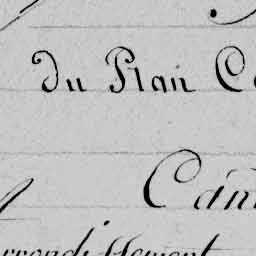 du Plan C
Can
rrondissement